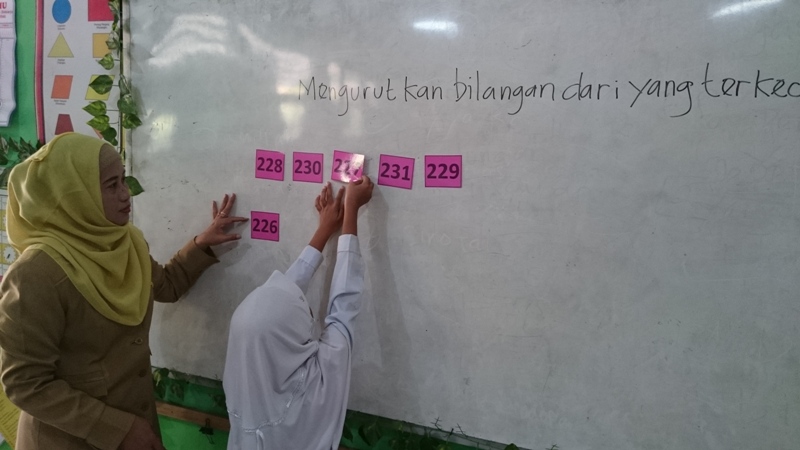 Mengurutkan bilangan dari yang terkec
228 230 227 231 229
226